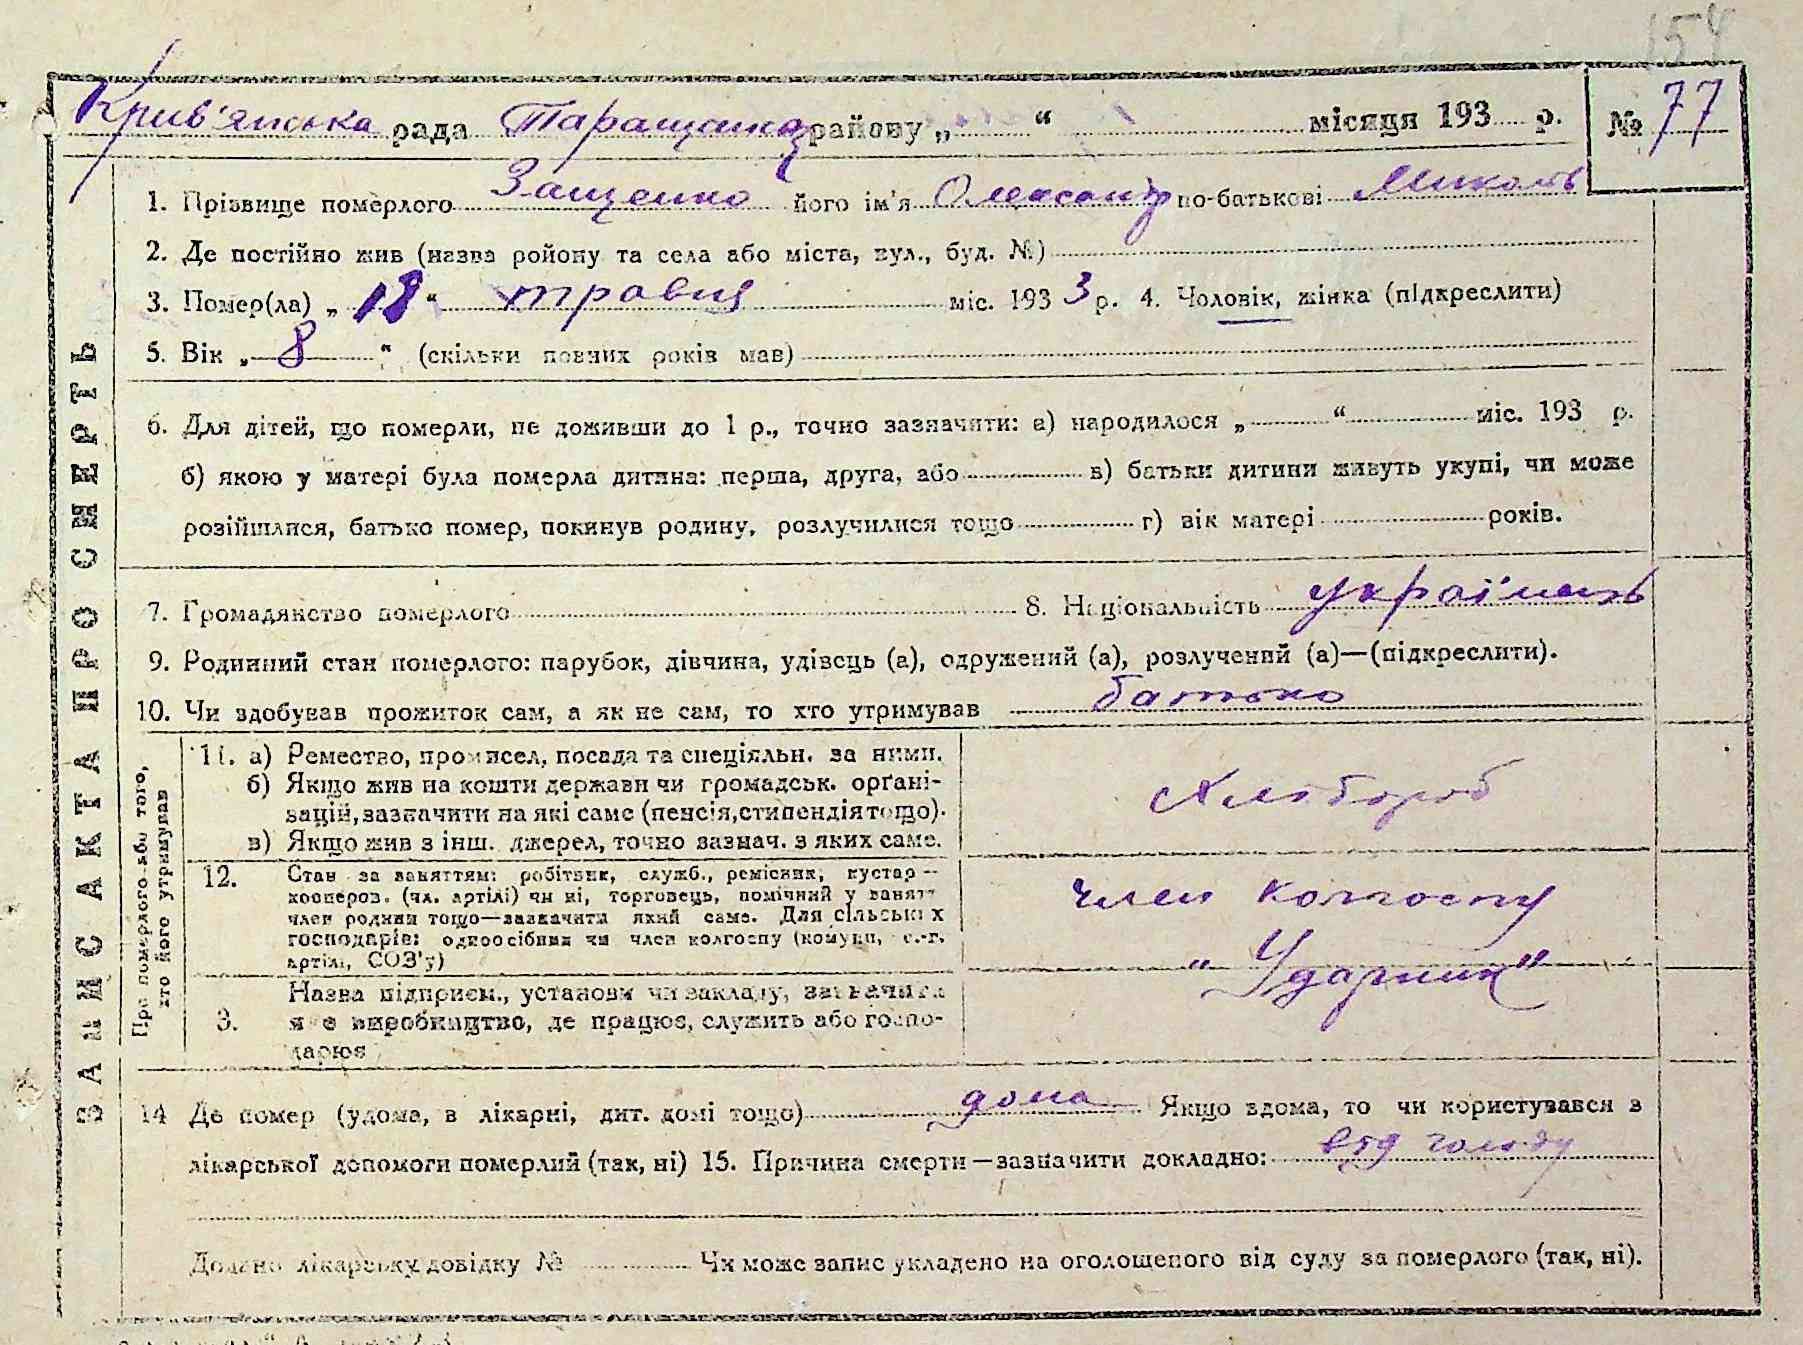 154
Крив'янська рада Таращанс району „ “ місяця 193 р. № 77
1. Прізвище померлого Защенко його ім'я Олександр по-батькові Миколов
2. Де постійно жив (назва ройону та села або міста, вул., буд. №)
3. Помер(ла) „ 18 “ травня міс. 193 3 р. 4. Чоловік, жінка (підкреслити)
5. Вік „ 8 “ (скільки повних років мав)
6. Для дітей, що померли, не доживши до 1 р., точно зазначити: а) народилося „ “ міс. 193 р.
б) якою у матері була померла дитина: перша, друга, або в) батьки дитини живуть укупі, чи може
розійшлися, батько помер, покинув родину, розлучилися тощо г) вік матері років.
7. Громадянство померлого 8. Національність українець
9. Родинний стан померлого: парубок, дівчина, удівець (а), одружений (а), розлучений (а)—(підкреслити).
10. Чи здобував прожиток сам, а як не сам, то хто утримував батько
ЗАПИС АКТА ПРО СМЕРТЬ
При померлого або того, хто його утримував
11. а) Ремество, промисел, посада та спеціяльн. за ними.
б) Якщо жив на кошти держави чи громадськ. органі-
зацій, зазначити на які саме (пенсія, стипендія тощо).
в) Якщо жив з інш. джерел, точно зазнач. з яких саме.
Хлібороб
12. Стан за заняттям: робітник, служб., ремісник, кустар—
коопероз. (чл. артілі) чи ні, торговець, помічний у занятт
член родини тощо—зазначити який саме. Для сільських
господарів: одноосібний чи член колгоспу (комуни, с.-г.
артілі, СОЗ'у)
член колгоспу
„Ударник“
3. Назва підприєм., установи чи закладу, зазначити
яке виробництво, де працює, служить або госпо-
дарює
14 Де помер (удома, в лікарні, дит. домі тощо) дома Якщо вдома, то чи користувався з
лікарської допомоги померлий (так, ні) 15. Причина смерти—зазначити докладно: від голоду
Додано лікарську довідку № Чи може запис укладено на оголошеного від суду за померлого (так, ні).